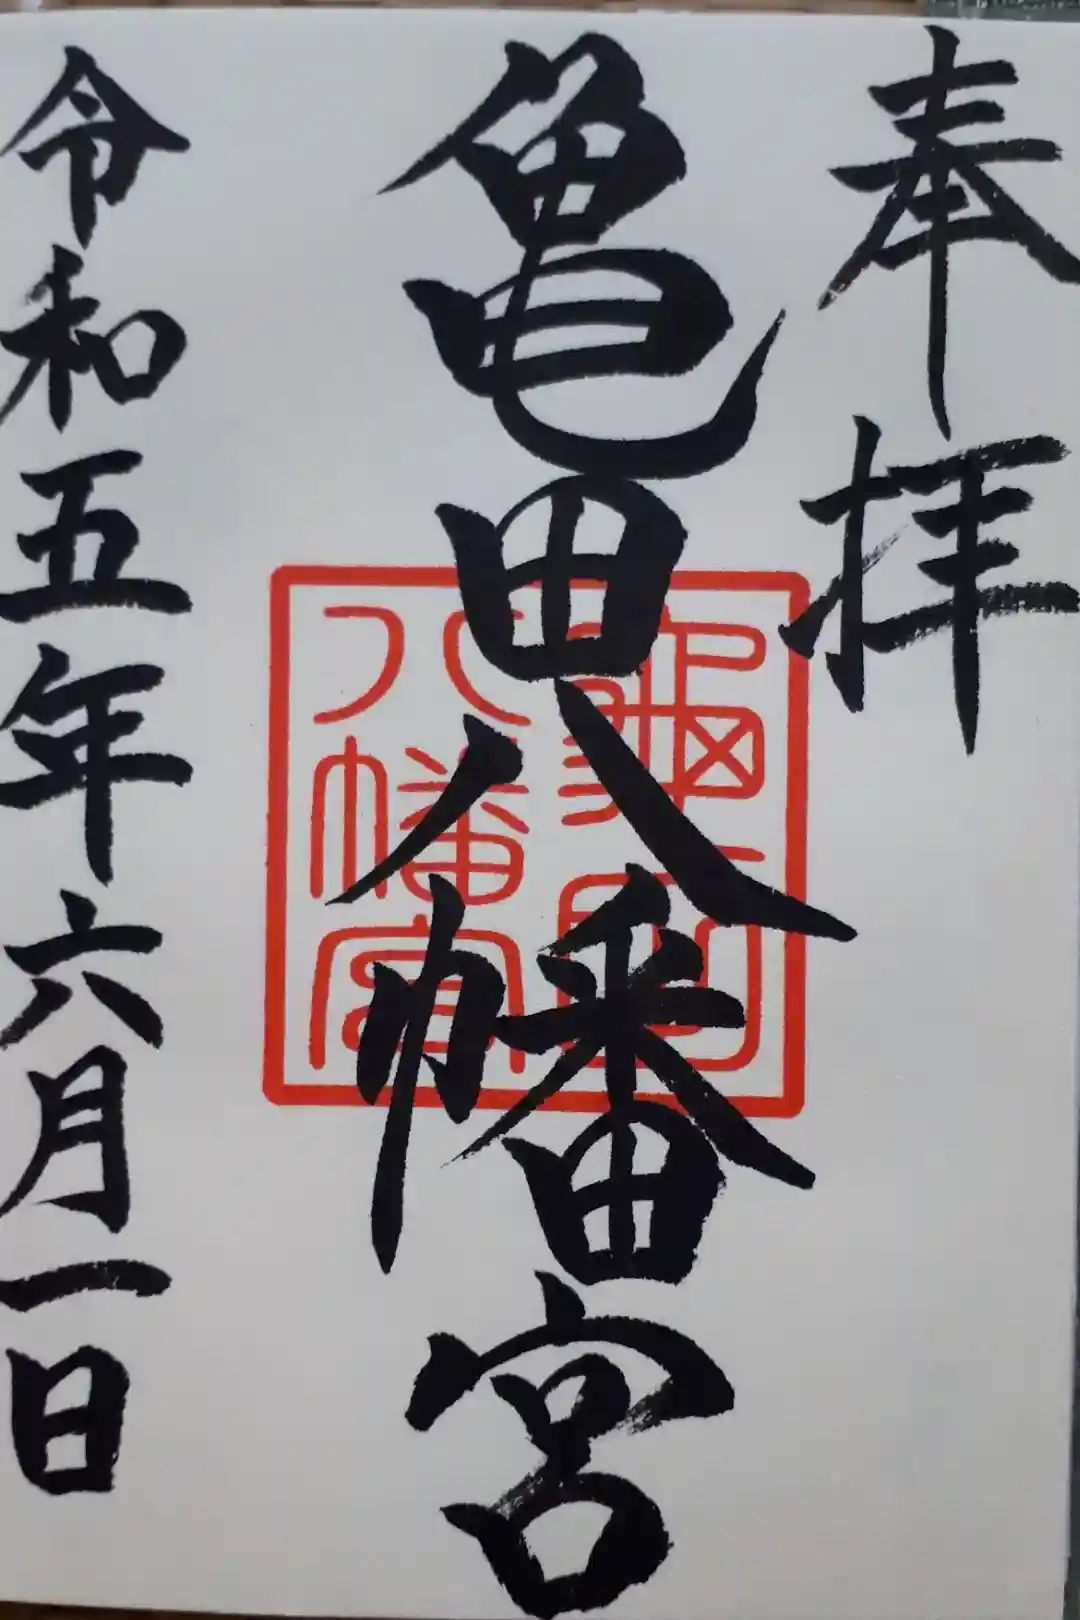 奉拝
亀田八幡宮
亀田
八幡宮
令和五年六月一日